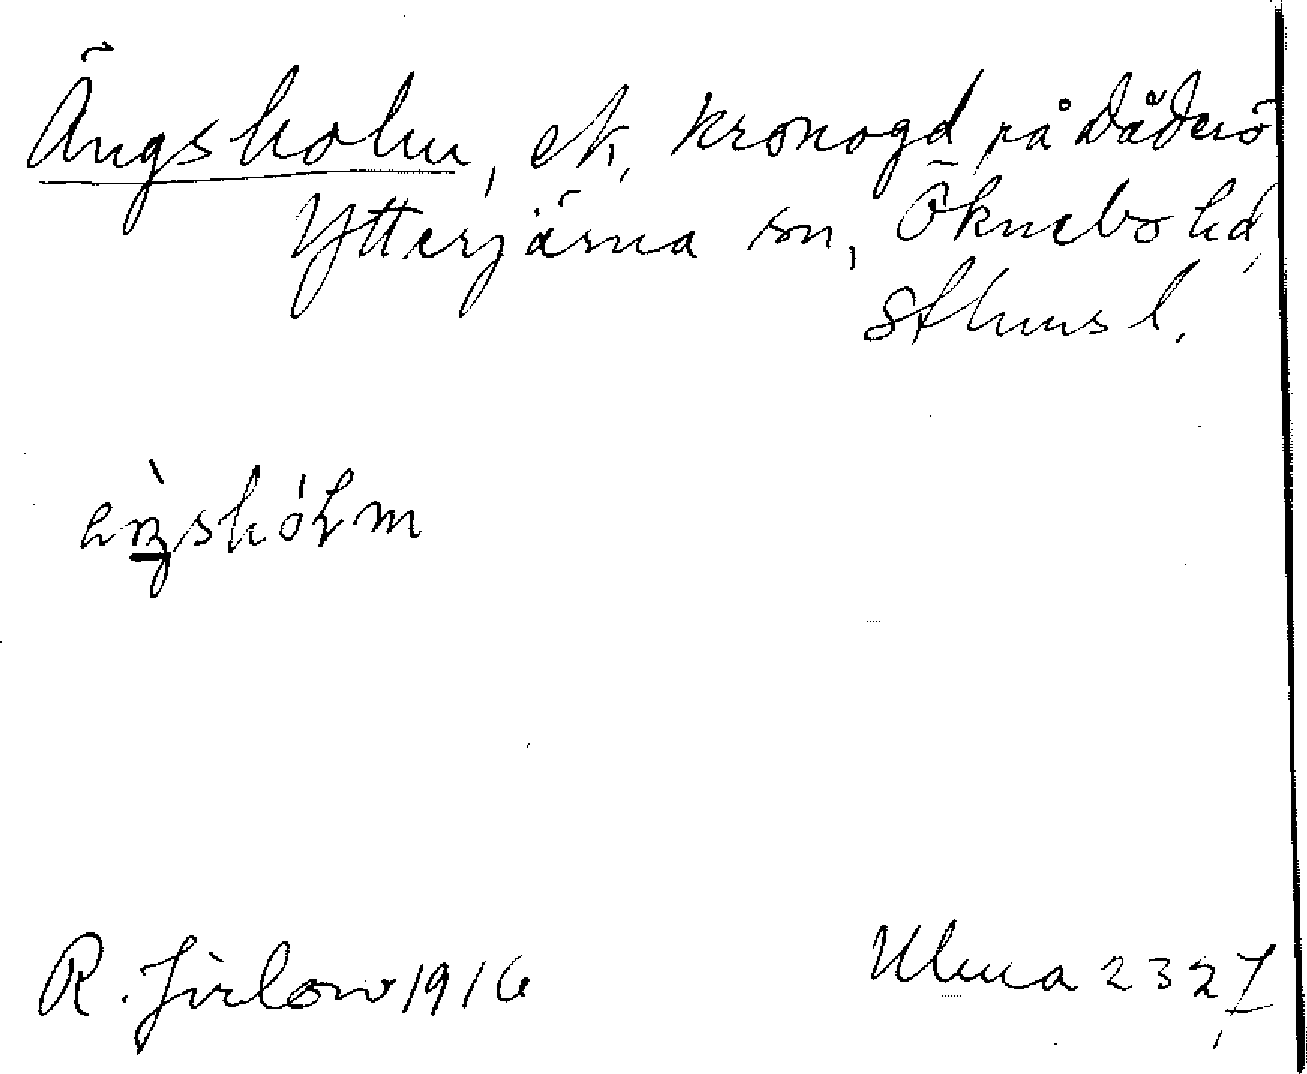 Ängsholm, ek, kronogd på Dåderö
Ytterjärna sn, Öknebo hd,
Sthms l.
R. Jirlow 1916
Ulma 2327